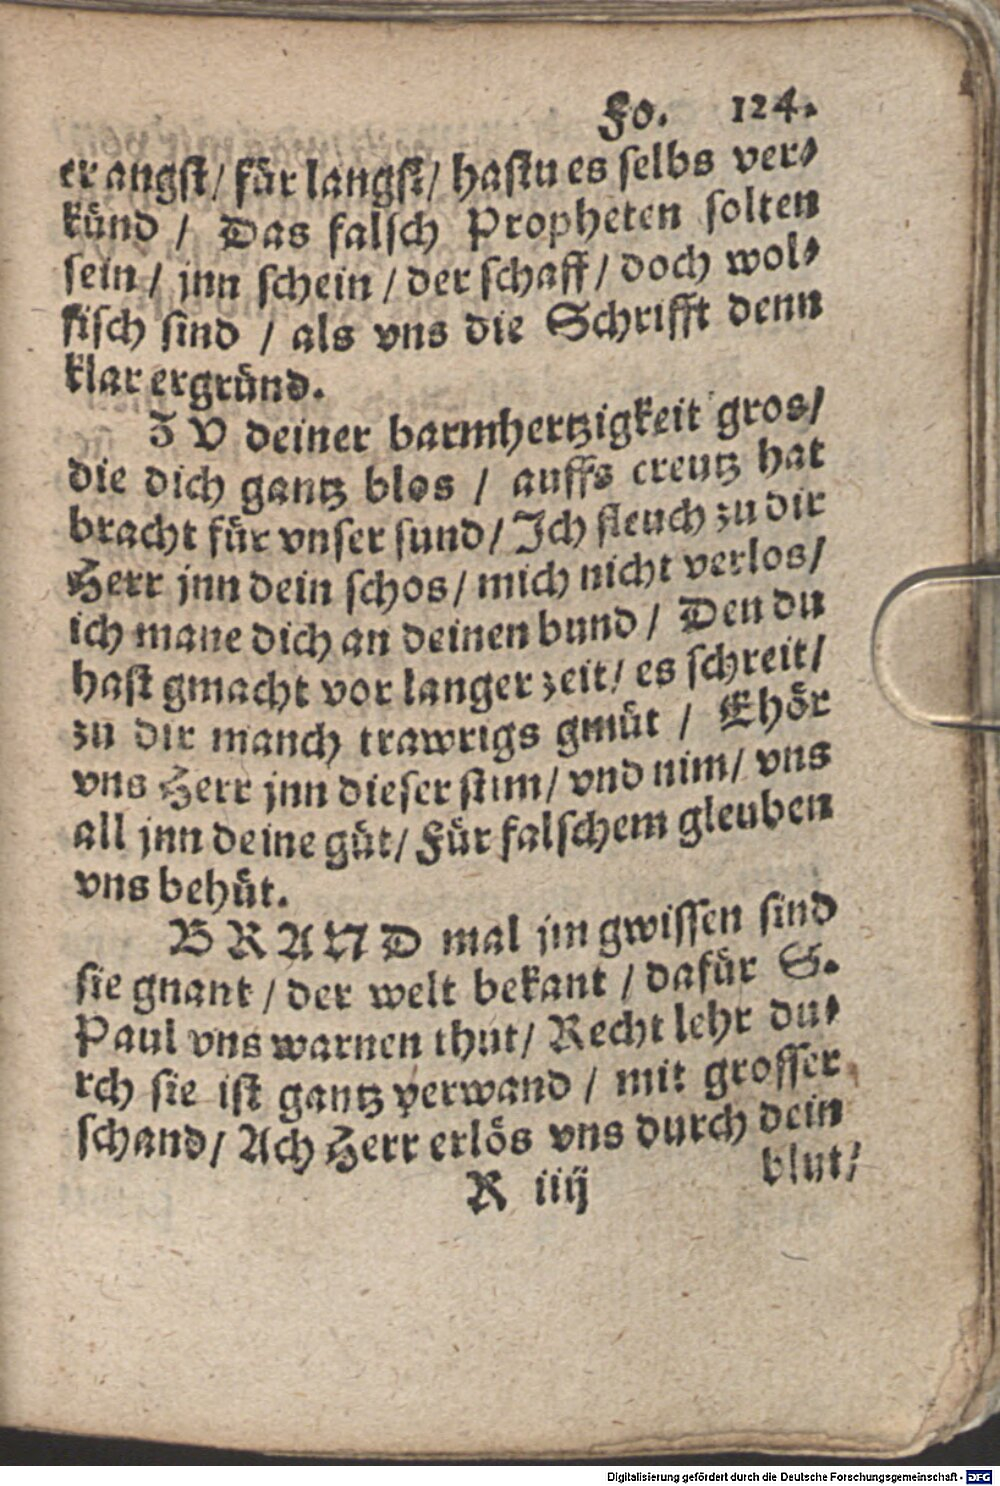 Fo. 124.
er angst/ für langst/ hastu es selbs ver⸗
künd / Das falsch Propheten solten
sein/ jnn schein / der schaff/ doch wol⸗
fisch sind / als vns die Schrifft denn
klar ergründ.
ZV deiner barmhertzigkeit gros/
die dich gantz blos / auffs creutz hat
bracht für vnser sund/ Ich fleuch zu dir
Herr jnn dein schos/ mich nicht verlos/
ich mane dich an deinen bund / Den du
hast gmacht vor langer zeit/ es schreit/
zu dir manch trawrigs gmüt / Ehör
vns Herr jnn dieser stim/ vnd nim/ vns
all jnn deine güt/ Für falschem gleuben
vns behüt.
BRAND mal jm gwissen sind
sie gnant / der welt bekant / dafür S.
Paul vns warnen thut/ Recht lehr du⸗
rch sie ist gantz verwand / mit grosser
schand/ Ach Herr erlös vns durch dein
R iiij blut/
Digitalisierung gefördert durch die Deutsche Forschungsgemeinschaft - DFG